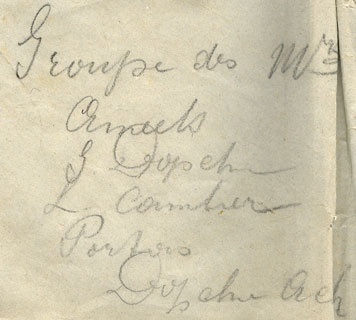 Groupe des Mrs
Ameels
G Dopchie
L Cambier
Portois
Dopchie Ach